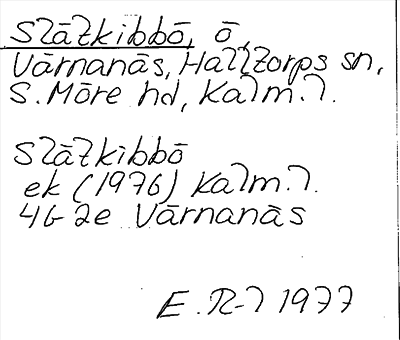 Slätkibbö, ö,
Värnanäs, Halltorps sn,
S. Möre hd, Kalm. l.
Slätkibbö
ek (1976) Kalm. l.
4G 2e Värnanäs
E. R-l 1977